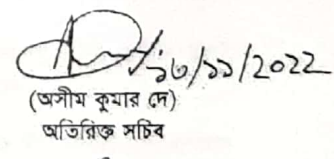 ১৬/১১/2022
(অসীম কুমার দে)
অতিরিক্ত সচিব